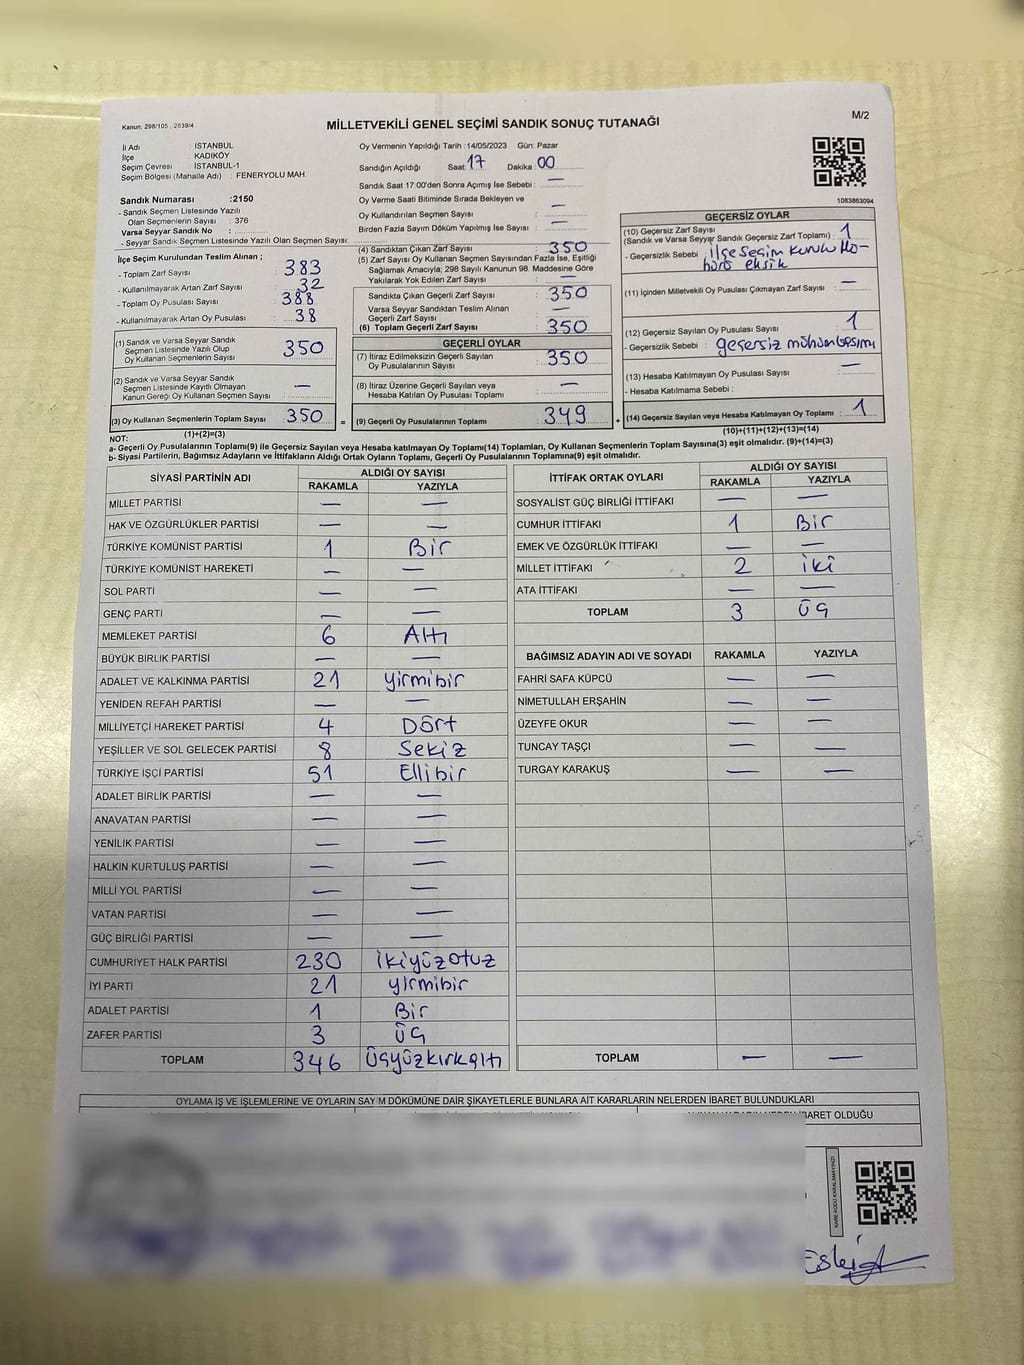 Kanun: 298/105 , 2839/4
MİLLETVEKİLİ GENEL SEÇİMİ SANDIK SONUÇ TUTANAĞI
M/2
İl Adı : İSTANBUL
İlçe : KADIKÖY
Seçim Çevresi : İSTANBUL-1
Seçim Bölgesi (Mahalle Adı) : FENERYOLU MAH.
Oy Vermenin Yapıldığı Tarih :14/05/2023 Gün: Pazar
Sandığın Açıldığı Saat: 17 Dakika: 00
Sandık Saat 17:00'den Sonra Açımış İse Sebebi : —
Oy Verme Saati Bitiminde Sırada Bekleyen ve
Oy Kullandırılan Seçmen Sayısı : —
Birden Fazla Sayım Döküm Yapılmış İse Sayısı : —
1083863094
Sandık Numarası :2150
- Sandık Seçmen Listesinde Yazılı
Olan Seçmenlerin Sayısı : 376
Varsa Seyyar Sandık No :
- Seyyar Sandık Seçmen Listesinde Yazılı Olan Seçmen Sayısı:
İlçe Seçim Kurulundan Teslim Alınan ;
- Toplam Zarf Sayısı : 383
- Kullanılmayarak Artan Zarf Sayısı : 32
- Toplam Oy Pusulası Sayısı : 388
- Kullanılmayarak Artan Oy Pusulası : 38
(1) Sandık ve Varsa Seyyar Sandık
Seçmen Listesinde Yazılı Olup
Oy Kullanan Seçmenlerin Sayısı : 350
(2) Sandık ve Varsa Seyyar Sandık
Seçmen Listesinde Kayıtlı Olmayan
Kanun Gereği Oy Kullanan Seçmen Sayısı : —
(3) Oy Kullanan Seçmenlerin Toplam Sayısı : 350 =
(1)+(2)=(3)
(4) Sandıktan Çıkan Zarf Sayısı : 350
(5) Zarf Sayısı Oy Kullanan Seçmen Sayısından Fazla İse, Eşitliği
Sağlamak Amacıyla; 298 Sayılı Kanunun 98. Maddesine Göre
Yakılarak Yok Edilen Zarf Sayısı : —
Sandıkta Çıkan Geçerli Zarf Sayısı : 350
Varsa Seyyar Sandıktan Teslim Alınan
Geçerli Zarf Sayısı : —
(6) Toplam Geçerli Zarf Sayısı : 350
GEÇERLİ OYLAR
(7) İtiraz Edilmeksizin Geçerli Sayılan
Oy Pusulalarının Sayısı : 350
(8) İtiraz Üzerine Geçerli Sayılan veya
Hesaba Katılan Oy Pusulaları Toplamı : —
(9) Geçerli Oy Pusulalarının Toplamı : 349 +
GEÇERSİZ OYLAR
(10) Geçersiz Zarf Sayısı
(Sandık ve Varsa Seyyar Sandık Geçersiz Zarf Toplamı) : 1
- Geçersizlik Sebebi : ilçe seçim kurulu Mü-
hürü eksik
(11) İçinden Milletvekili Oy Pusulası Çıkmayan Zarf Sayısı : —
(12) Geçersiz Sayılan Oy Pusulası Sayısı : 1
- Geçersizlik Sebebi : geçersiz mühür basımı
(13) Hesaba Katılmayan Oy Pusulası Sayısı : —
- Hesaba Katılmama Sebebi :
(14) Geçersiz Sayılan veya Hesaba Katılmayan Oy Toplamı : 1
(10)+(11)+(12)+(13)=(14)
NOT:
a- Geçerli Oy Pusulalarının Toplamı(9) ile Geçersiz Sayılan veya Hesaba katılmayan Oy Toplamı(14) Toplamları, Oy Kullanan Seçmenlerin Toplam Sayısına(3) eşit olmalıdır. (9)+(14)=(3)
b- Siyasi Partilerin, Bağımsız Adayların ve İttifakların Aldığı Ortak Oyların Toplamı, Geçerli Oy Pusulalarının Toplamına(9) eşit olmalıdır.
SİYASİ PARTİNİN ADI ALDIĞI OY SAYISI
RAKAMLA YAZIYLA
MİLLET PARTİSİ — —
HAK VE ÖZGÜRLÜKLER PARTİSİ — —
TÜRKİYE KOMÜNİST PARTİSİ 1 Bir
TÜRKİYE KOMÜNİST HAREKETİ — —
SOL PARTİ — —
GENÇ PARTİ — —
MEMLEKET PARTİSİ 6 Altı
BÜYÜK BİRLİK PARTİSİ — —
ADALET VE KALKINMA PARTİSİ 21 yirmibir
YENİDEN REFAH PARTİSİ — —
MİLLİYETÇİ HAREKET PARTİSİ 4 Dört
YEŞİLLER VE SOL GELECEK PARTİSİ 8 Sekiz
TÜRKİYE İŞÇİ PARTİSİ 51 Ellibir
ADALET BİRLİK PARTİSİ — —
ANAVATAN PARTİSİ — —
YENİLİK PARTİSİ — —
HALKIN KURTULUŞ PARTİSİ — —
MİLLİ YOL PARTİSİ — —
VATAN PARTİSİ — —
GÜÇ BİRLİĞİ PARTİSİ — —
CUMHURİYET HALK PARTİSİ 230 ikiyüzotuz
İYİ PARTİ 21 yirmibir
ADALET PARTİSİ 1 Bir
ZAFER PARTİSİ 3 üç
TOPLAM 346 üçyüzkırkaltı
İTTİFAK ORTAK OYLARI ALDIĞI OY SAYISI
RAKAMLA YAZIYLA
SOSYALİST GÜÇ BİRLİĞİ İTTİFAKI — —
CUMHUR İTTİFAKI 1 Bir
EMEK VE ÖZGÜRLÜK İTTİFAKI — —
MİLLET İTTİFAKI 2 iki
ATA İTTİFAKI — —
TOPLAM 3 üç
BAĞIMSIZ ADAYIN ADI VE SOYADI RAKAMLA YAZIYLA
FAHRİ SAFA KÜPCÜ — —
NİMETULLAH ERŞAHİN — —
ÜZEYFE OKUR — —
TUNCAY TAŞÇI — —
TURGAY KARAKUŞ — —
TOPLAM — —
OYLAMA İŞ VE İŞLEMLERİNE VE OYLARIN SAYIM DÖKÜMÜNE DAİR ŞİKAYETLERLE BUNLARA AİT KARARLARIN NELERDEN İBARET BULUNDUKLARI
İBARET OLDUĞU
KARE KODU KARALAMAYINIZ!